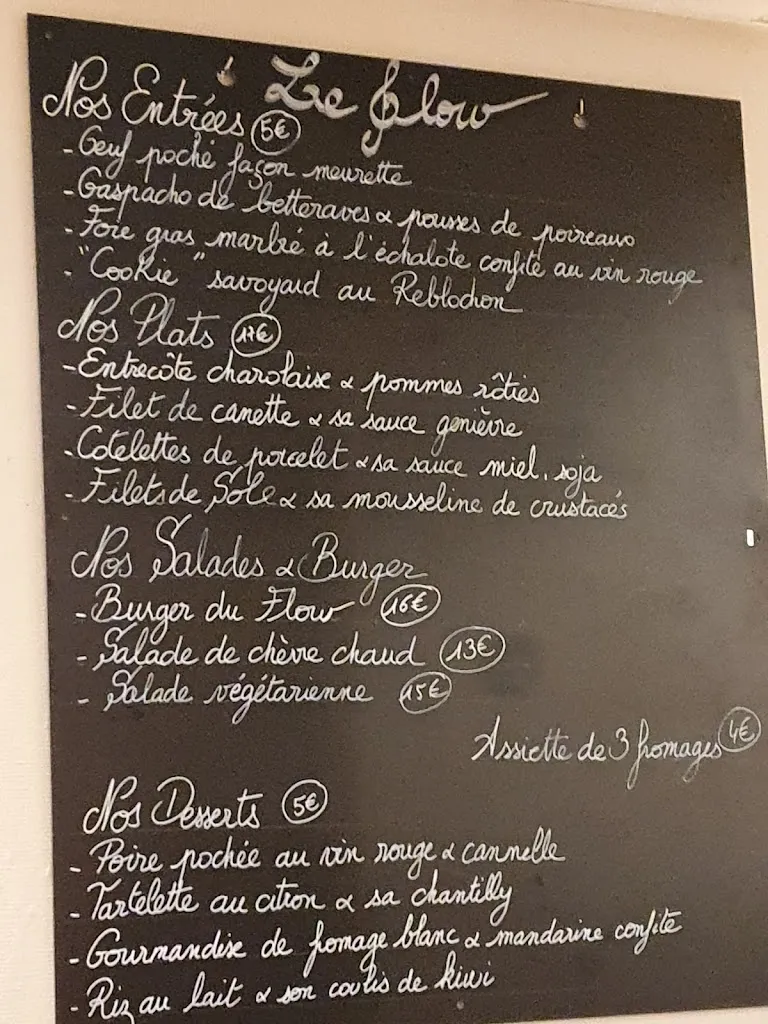 Le Flow
Nos Entrées 5€
- Oeuf poché façon meurette
- Gaspacho de betteraves & pousses de poireaux
- Foie gras marbré à l'échalote confite au vin rouge
- "Cookie" savoyard au Reblochon
Nos Plats 17€
- Entrecôte charolaise & pommes rôties
- Filet de canette & sa sauce genièvre
- Cotelettes de porcelet & sa sauce miel, soja
- Filets de Sole & sa mousseline de crustacés
Nos Salades & Burger
- Burger du Flow 16€
- Salade de chèvre chaud 13€
- Salade végétarienne 15€
Assiette de 3 fromages 4€
Nos Desserts 5€
- Poire pochée au vin rouge & cannelle
- Tartelette au citron & sa chantilly
- Gourmandise de fromage blanc & mandarine confite
- Riz au lait & son coulis de kiwi